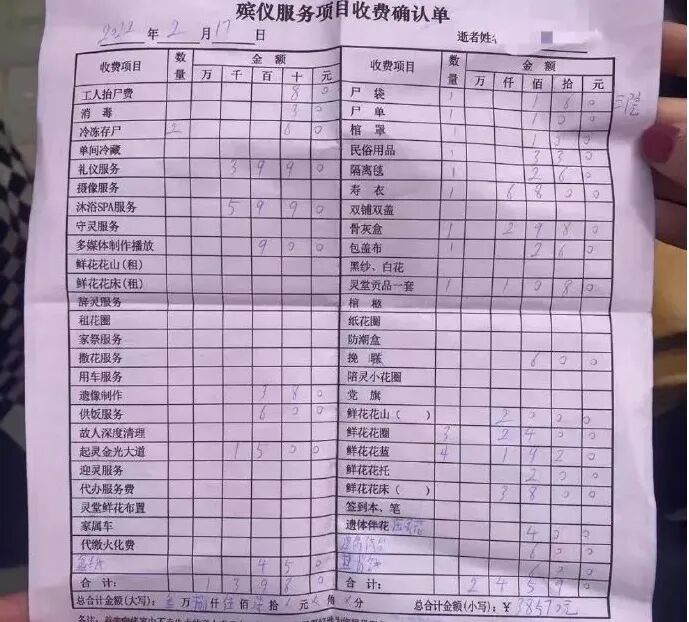 殡仪服务项目收费确认单
2022 年 2 月 17 日 逝者姓名
收费项目 数量 金额 收费项目 数量 金额
万 千 百 十 元 万 仟 佰 拾 元
工人抬尸费 8 0 尸袋 1 1 6 0
消毒 3 0 尸单 1 1 0 0
冷冻存尸 2 6 0 棺罩 1 1 0 0
单间冷藏 民俗用品 1 3 3 0
礼仪服务 3 9 9 0 隔离毯 1 2 6 0
摄像服务 寿衣 1 6 8 0 0
沐浴SPA服务 5 9 9 0 双铺双盖
守灵服务 骨灰盒 1 2 9 8 0
多媒体制作播放 9 0 0 包盖布 1 2 6 0
鲜花花山(租) 黑纱、白花
鲜花花床(租) 灵堂贡品一套 1 1 0 8 0
辞灵服务 棺柩
租花圈 纸花圈
家祭服务 防潮盒
撒花服务 挽联 6 0 0
用车服务 陪灵小花圈
遗像制作 3 8 0 党旗
供饭服务 6 0 0 鲜花花山( ) 2 0 0 0
故人深度清理 鲜花花圈 3 2 4 0 0
起灵金光大道 1 5 0 0 鲜花花蓝 4 1 9 2 0
迎灵服务 鲜花花托 2 0 0
代办服务费 鲜花花床( ) 3 8 0 0
灵堂鲜花布置 签到本、笔
家属车 遗体伴花 4 0 0
代缴火化费 6 0 0
4 5 0 6 0 0
合计: 1 3 9 8 0 合计: 2 4 5 9 0
总合计金额(大写): 叁万捌仟伍佰柒拾 元 角 分 总合计金额(小写):¥ 38570元